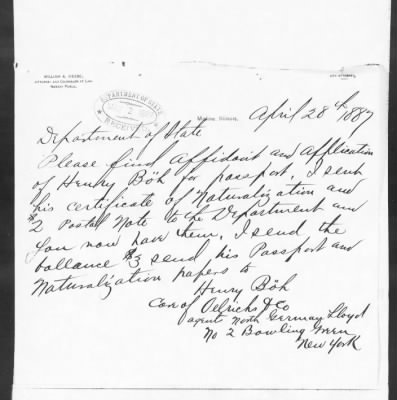 WILLIAM A. MEESE,
ATTORNEY AND COUNSELOR AT LAW.
NOTARY PUBLIC.
CITY ATTORNEY.
DEPARTMENT OF STATE
RECEIVED
Moline, Illinois, April 28th 1887
Department of State
Please find Affidavit and Application
of Henry Böh for passport, I sent
his certificate of Naturalization and
$2 Postal Note to the Department and
you now have them, I send the
ballance $3 send his Passport and
Naturalization papers to
Henry Böh
Care of Oelrichs & Co
agents North German Lloyd
No 2 Bowling Green
New York